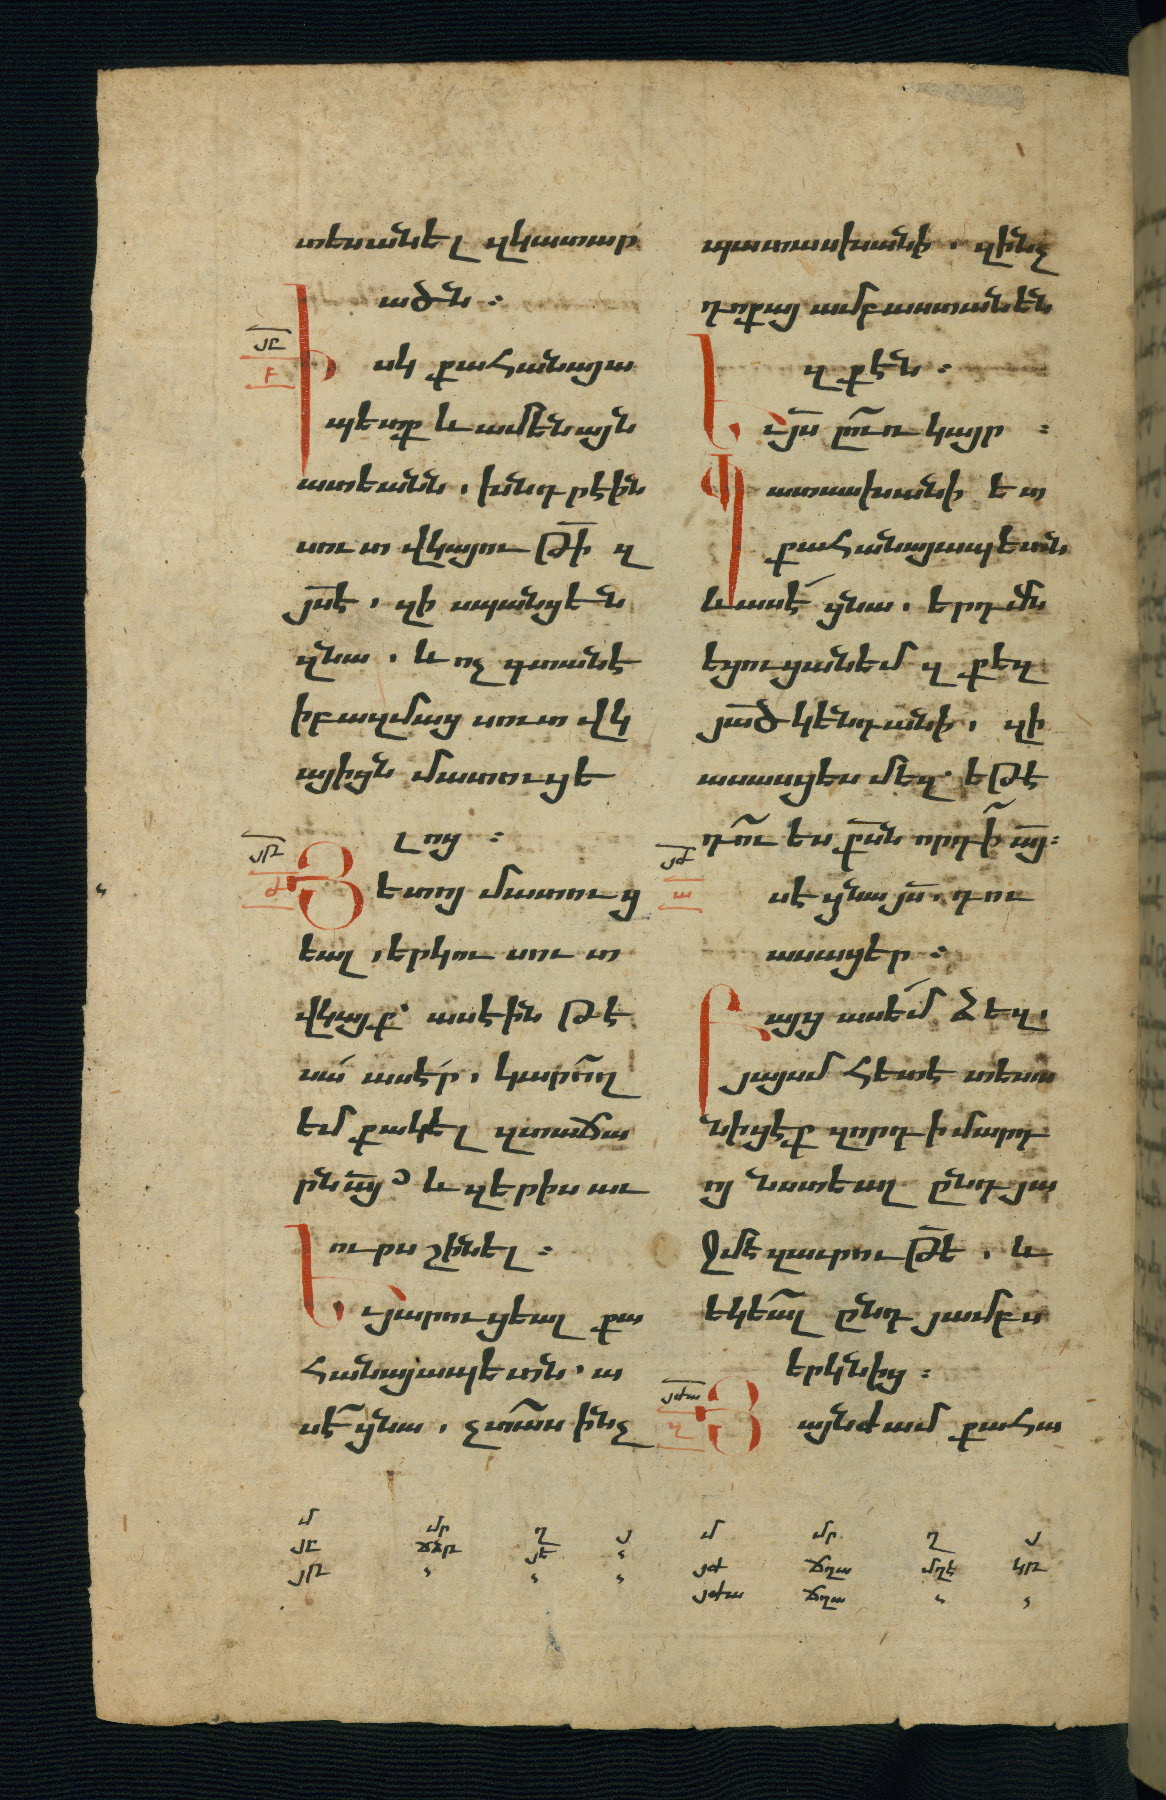 տեսանել զկատար
ածն :
յը
բ
Իսկ քահանայա
պետք և ամենայն
ատեանն . խնդրէին
սուտ վկայութի զ
յսէ . զի սպանցեն
զնա . և ոչ գտանէ
ի բազմաց սուտ վկ
այիցն մատուցե
լոց :
յթ
զ
Յետոյ մատուց
եալ , երկու սուտ
վկայք՝ ասէին թէ
սա ասէր . կարող
եմ քակել զտաճա
րն այ և զերիս աւ
ուրս շինել :
Եւ յարուցեալ քա
հանայապետն . ա
սէ ցնա . չտաս ինչ
պատասխանի . զինչ
դոքայ ամբաստանեն
զքէն :
Եւ յս լուռ կայր :
Պատասխանի ետ
քահանայապետն
և ասէ ցնա . երդմն
եցուցանեմ զքեզ
յած կենդանի . զի
ասասցես մեզ՝ եթէ
դու ես քսն որդի այ :
յժ
Ասէ ցնա յս . դու
ասացեր :
Բայց ասեմ ձեզ .
յայսմ հետէ տեսա
նիցէք զորդի մարդ
ոյ նստեալ ընդ յա
ջմէ զաւրութե . և
եկեալ ընդ յամբս
երկնից :
յժա
Յայնժամ քահա
մ մր ղ յ
յը ճձբ յէ
յթ
մ մր ղ յ
յժ ճղա մղէ կթ
յժա ճղա